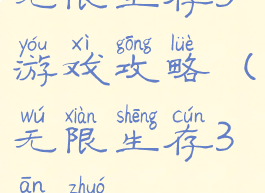 无限生存3
yóu xì gōng lüè
游戏攻略（
wú xiàn shēng cún
无限生存3
ān zhuó